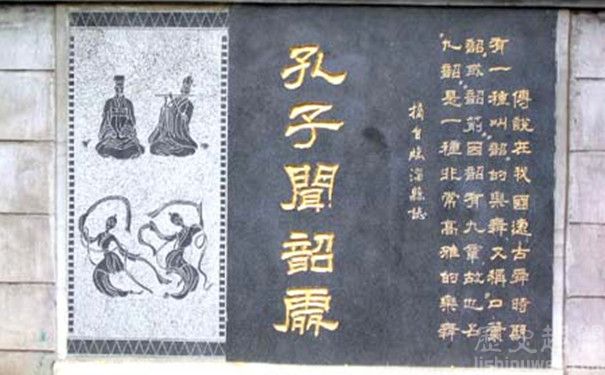 傳說在我國遠古舜時期
有一種叫韶的樂舞又稱簫
韶或韶箾因韶有九章故也名
九韶是一種非常高雅的樂舞
摘自臨淄縣誌
孔子聞韶處